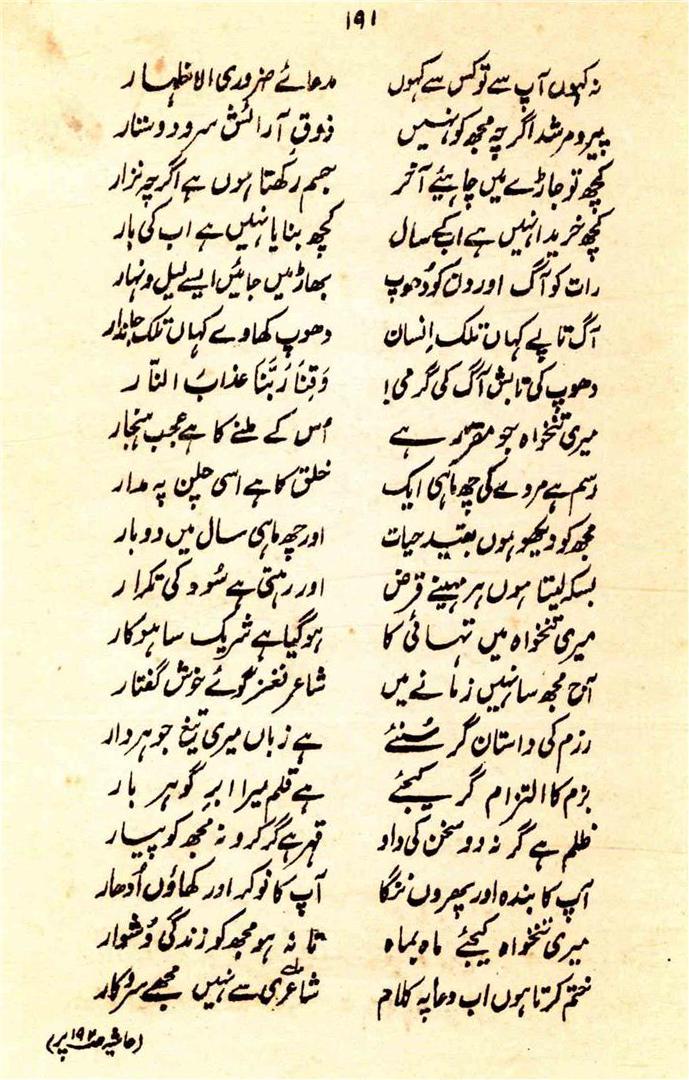 ۱۹۱
نہ کہوں آپ سے تو کس سے کہوں مدعائے ضروری الاظہار
پیر و مرشد اگرچہ مجھ کو نہیں ذوقِ آرائش سر و دستار
کچھ تو جاڑے میں چاہیئے آخر جسم رکھتا ہوں ہے اگرچہ نزار
کچھ خریدا نہیں ہے اب کے سال کچھ بنایا نہیں ہے اب کی بار
رات کو آگ اور دن کو دُھوپ بھاڑ میں جائیں ایسے لیل و نہار
آگ تاپے کہاں تلک اِنسان دھوپ کھاوے کہاں تلک جاندار
دھوپ کی تابش آگ کی گرمی! وَقِنَا رَبَّنَا عذابَ النّار
میری تنخواہ جو مقرر ہے اُس کے ملنے کا ہے عجب ہنجار
رسم ہے مردے کی چھ ماہی ایک خلق کا ہے اسی چلن پہ مدار
مجھ کو دیکھو ہوں بقیدِ حیات اور چھ ماہی سال میں دو بار
بسکہ لیتا ہوں ہر مہینے قرض اور رہتی ہے سُود کی تکرار
میری تنخواہ میں تہائی کا ہوگیا ہے شریک ساہوکار
آج مجھ سا نہیں زمانے میں شاعر نغز گوئے خوش گفتار
رزم کی داستان گر سُنئے ہے زباں میری تیغ جوہردار
بزم کا التزام گر کیجئے ہے قلم میرا ابرِ گوہر بار
ظلم ہے گر نہ دو سخن کی داد قہر ہے گر کرو نہ مجھ کو پیار
آپ کا بندہ اور پھروں ننگا آپ کا نوکر اور کھاؤں اُدھار
میری تنخواہ کیجئے ماہ بماہ تا نہ ہو مجھ کو زندگی دُشوار
ختم کرتا ہوں اب دعا پہ کلام شاعری سے نہیں مجھے سروکار
(حاشیہ صـ ۱۹۲ پر)